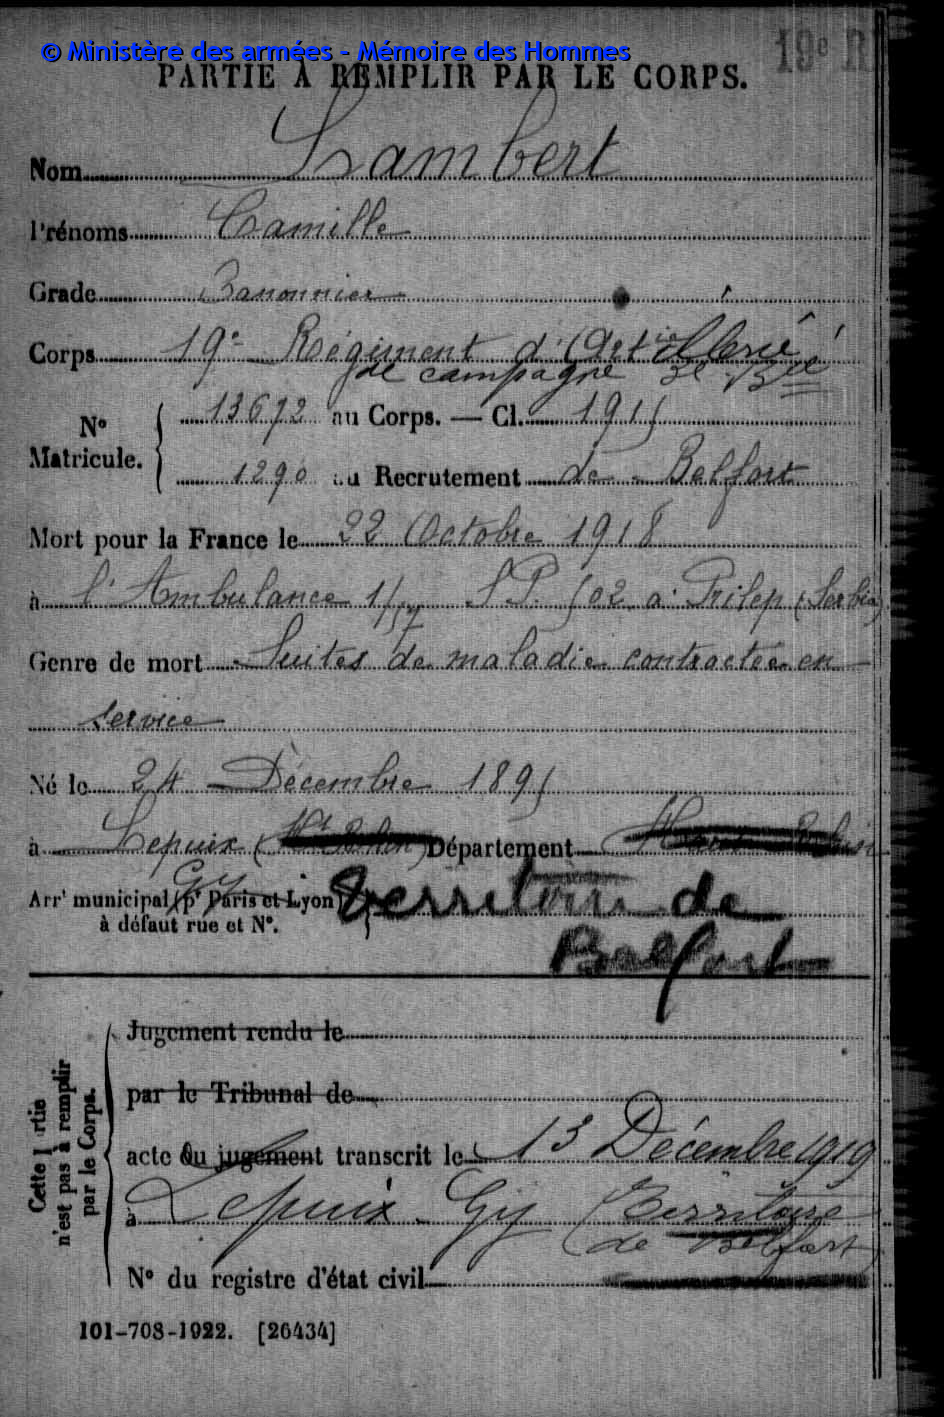 © Ministère des armées - Mémoire des Hommes
19e R
PARTIE À REMPLIR PAR LE CORPS.
Nom Lambert
Prénoms Camille
Grade Canonnier
Corps 19e Régiment d'Artillerie
de campagne 3e Bie
No Matricule. 13672 au Corps. — Cl. 1915
1290 au Recrutement de Belfort
Mort pour la France le 22 Octobre 1918
à l'Ambulance 1/57 S P. 502 à Prilep (Serbie)
Genre de mort Suites de maladie contractée en
service
Né le 24 Décembre 1895
à Lepuix (Ht Rhin) Département Haut-Rhin
Gy
Arrt municipal (pr Paris et Lyon), Territoire de
à défaut rue et No. Belfort
Cette partie n'est pas à remplir par le Corps.
Jugement rendu le
par le Tribunal de
acte ou jugement transcrit le 13 Décembre 1919
à Lepuix - Gy (Territoire
de Belfort)
No du registre d'état civil
101-708-1922. [26434]